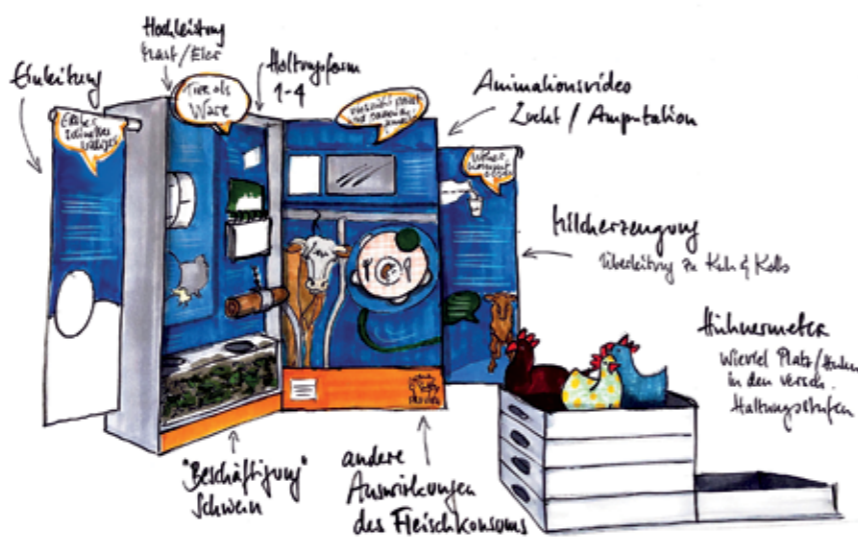 Einleitung
Hochleistung
Mast/Eier
Haltungsform
1-4
Tiere als
Ware
Animationsvideo
Zucht / Amputation
Milcherzeugung
Überleitung zu Kuh & Kalb
Hühnermeter
Wieviel Platz/Huhn
in den versch.
Haltungsstufen
"Beschäftigung"
Schwein
andere
Auswirkungen
des Fleischkonsums